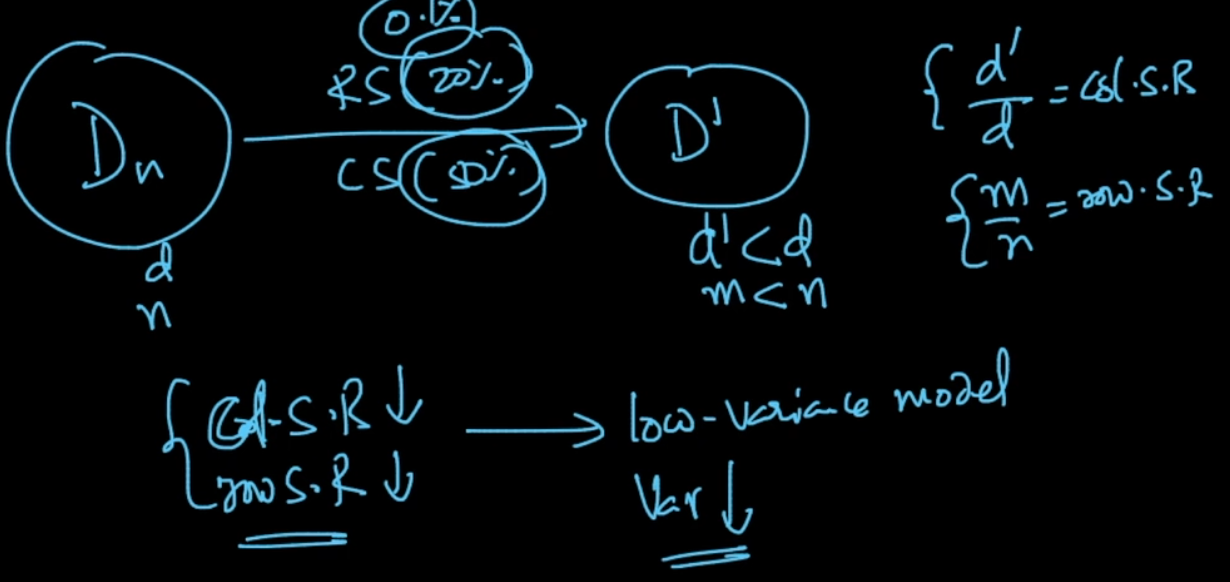 0.1%
RS (20%)
CS (50%)
Dn
d
n
D'
d' < d
m < n
{ d'/d = Col.S.R
{ m/n = row.S.R
{ Col-S.R ↓
row S.R ↓
→ low-variance model
Var ↓